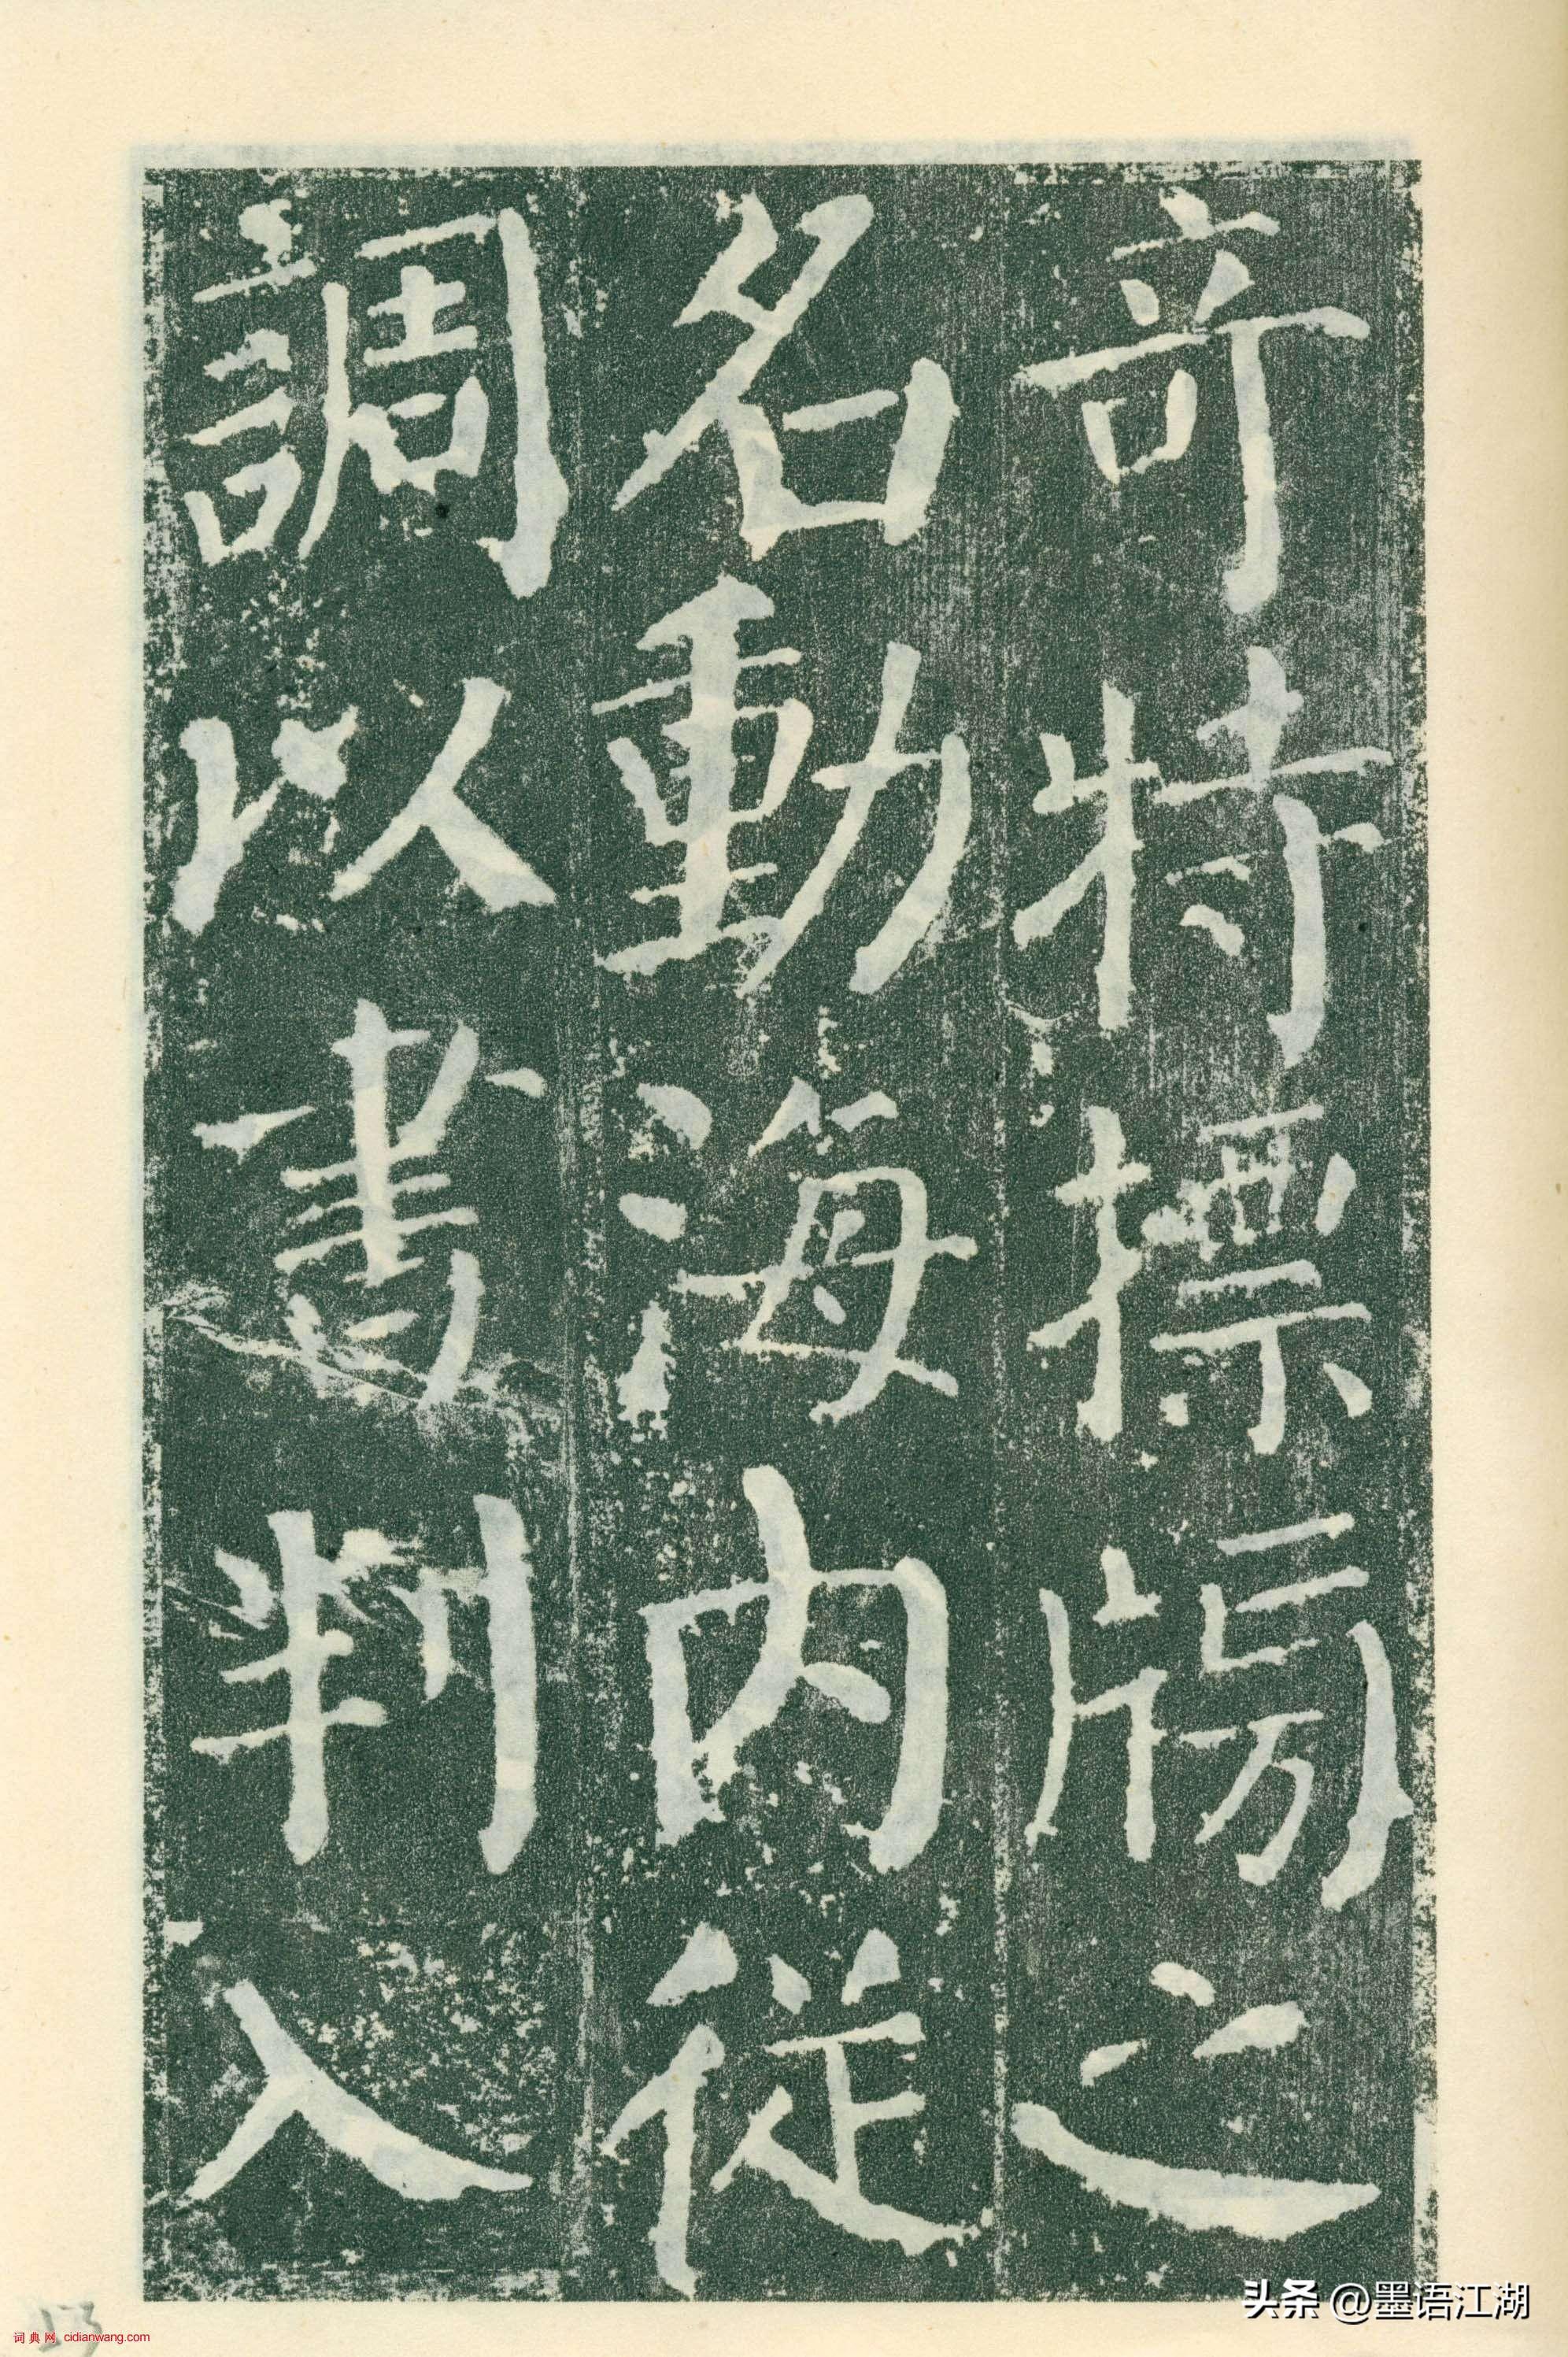 竒特摽牓之
名動海內從
調以書判入
头条 @墨语江湖
词典网 cidianwang.com